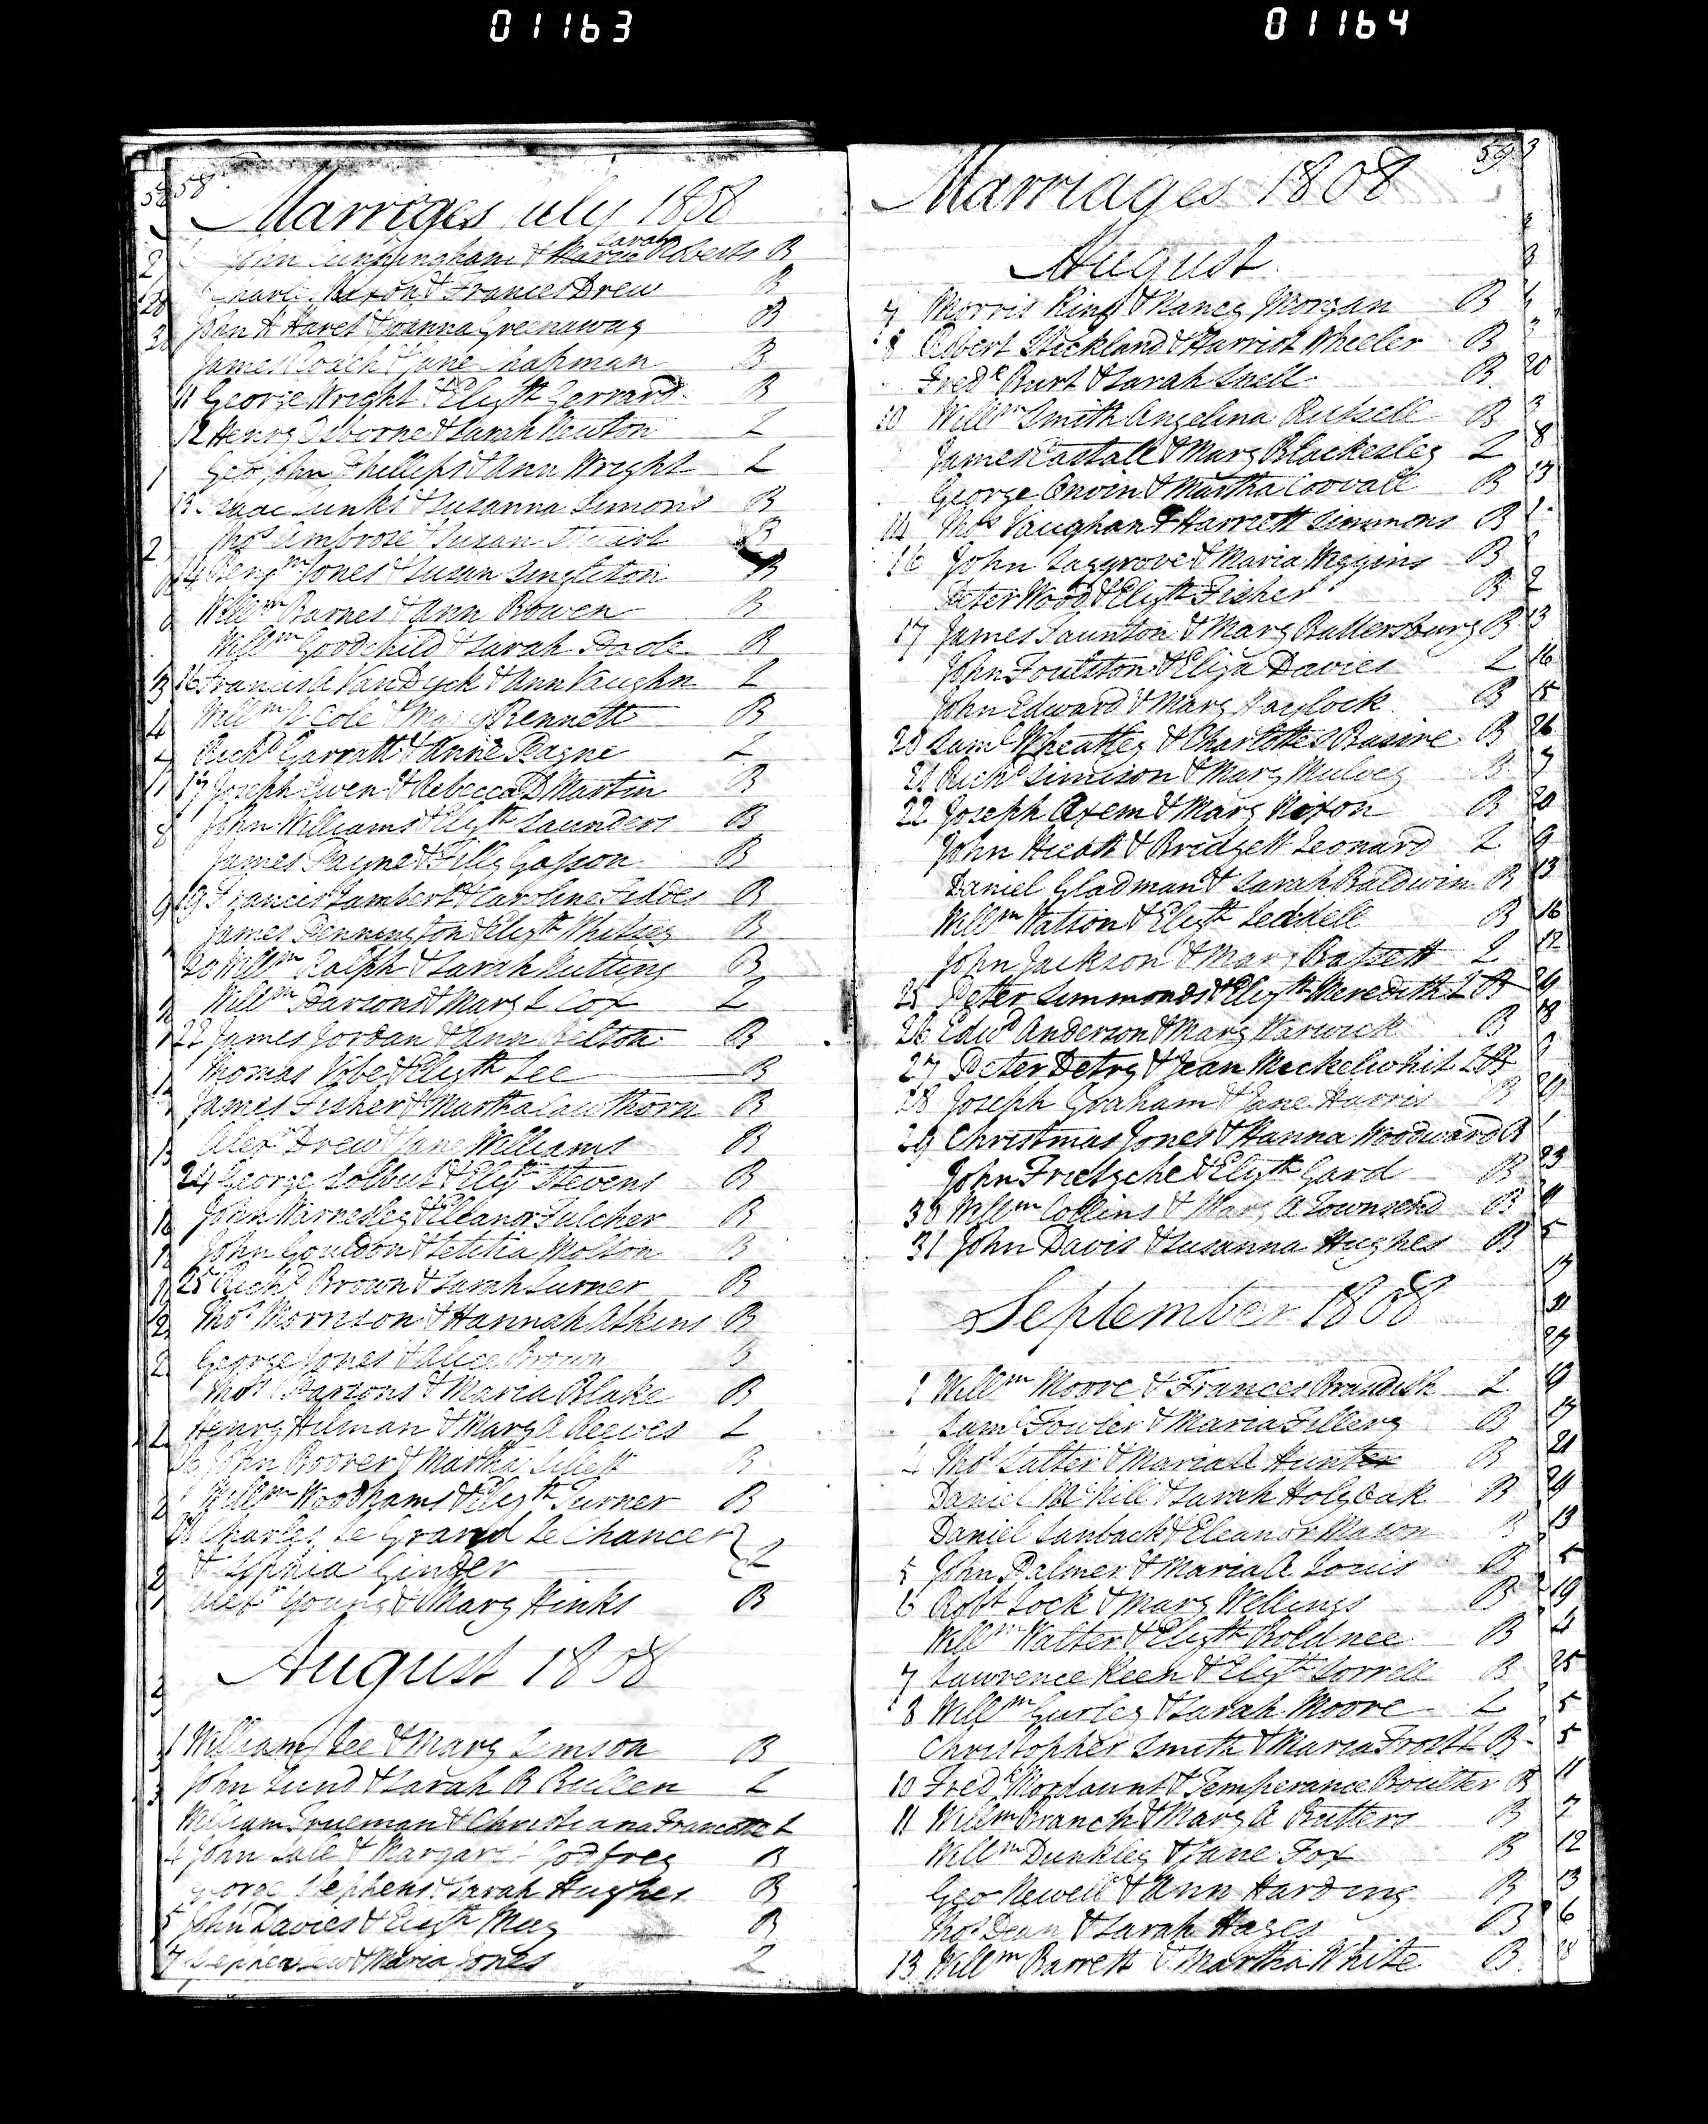 01163
01164
58
Marriges July 1808
John Cunningham & Maria Sarah Roberts B
Nixon & Frances Drew B
John H Hares & Joanna Greenaway B
James Coach & Jane Chapman B
11 George Wright & Elizth Gerrard B
12 Henry Osborne & Sarah Newton L
Geo John Phillips & Ann Wright L
13 Isaac Tunks & Susanna Simons B
Thos Ambrose & Susan Stuart B
14 Benjm Jones & Susan Singleton B
Willm Barnes & Ann Bowen B
Willm Goodchild & Sarah Poole B
16 Francis A Van Dyck & Ann Vaughn L
Willm P Cole & Mary Bennett B
Richd Garratt & Anne Payne L
17 Joseph Owen & Rebecca D Martin B
John Williams & Elizth Saunders B
James Payne & Tilly Gasson B
19 Francis Lambert & Caroline Fiddes B
James Pennington & Elizth Whitsey B
20 Willm Ralph & Sarah Nutting B
Willm Parsons & Mary L Cox L
22 James Jordan & Ann Belton B
Thomas Vobe & Elizth Lee B
James Fisher & Martha Cawthorn B
Alexr Drew & Jane Williams B
24 George Solbut & Elizth Stevens B
John Warnesley & Elleanor Fulcher B
John Gouldon & Letitia Molson B
25 Richd Brown & Sarah Turner B
Thos Morrison & Hannah Atkins B
George Jones & Alice Brown B
Thos Parsons & Maria Blake B
Henry Hilman & Mary A Reeves L
John Roover & Martha Sillett B
Willm Woodhams & Elizth Turner B
Charles Le Grand Le Chancer
& Sophia Ginger L
Alexr Young & Mary Hinks B
August 1808
1 William Lee & Mary Simson B
John Lund & Sarah B Bullen L
William Trueman & Christiana Francotte L
4 John Sale & Margaret Godfrey B
George Stephens & Sarah Hughes B
5 John Davies & Elizth May B
7 Stephen Lew & Maria Jones L
59
Marriages 1808
August
7 Morris King & Nancy Morgan B
8 Robert Stickland & Harriot Wheeler B
Fredk Burt & Sarah Snell B
10 Willm Smith Angelina Russell B
James Castall & Mary Blackesley L
George Onvin & Martha Covvall B
14 Thos Vaughan & Harriett Simmons B
16 John Saggrove & Maria Wiggins B
Peter Wood & Elizth Fisher B
17 James Taunton & Mary Battersbury B
John Foulston & Eliza Davies L
John Edward & Mary Haylock B
20 Saml Wheatley & Charlotte S Basire B
21 Richd Simison & Mary Mulvey B
22 Joseph Axem & Mary Nixon B
John Hieatt & Bridgett Leonard L
Daniel Gladman & Sarah Baldwin B
Willm Watson & Elizth Leddell B
John Jackson & Mary Bassett L
25 Peter Simmonds & Elizth Meredith L B
26 Edwd Anderson & Mary Warwick B
27 Peter Detry & Jean Meckelwhit L B
28 Joseph Graham & Jane Harris B
29 Christmas Jones & Hanna Woodward B
John Frietzche & Elizth Gard B
30 Willm Collins & Mary A Townsend B
31 John Davis & Susanna Hughes B
September 1808
1 Willm Moore & Frances Brandish L
Saml Fowler & Maria Fillery B
4 Thos Salter & Maria A Hunter B
Daniel McNill & Sarah Holyoak B
Daniel Sanback & Eleanor Mason B
5 John Palmer & Maria A Louis B
6 Robt Lock & Mary Wellings B
Willm Walter & Elizth Boldnee B
7 Lawrence Keen & Elizth Sorrell B
8 Willm Gurley & Sarah Moore L
Christopher Smith & Maria Frost L B
10 Fredk Mordaunt & Temperance Boulter B
11 Willm Branch & Mary A Butters B
Willm Dunkley & Jane Fox B
Geo Newell & Ann Harding B
Thos Dean & Sarah Hayes B
13 Willm Barrett & Martha White B